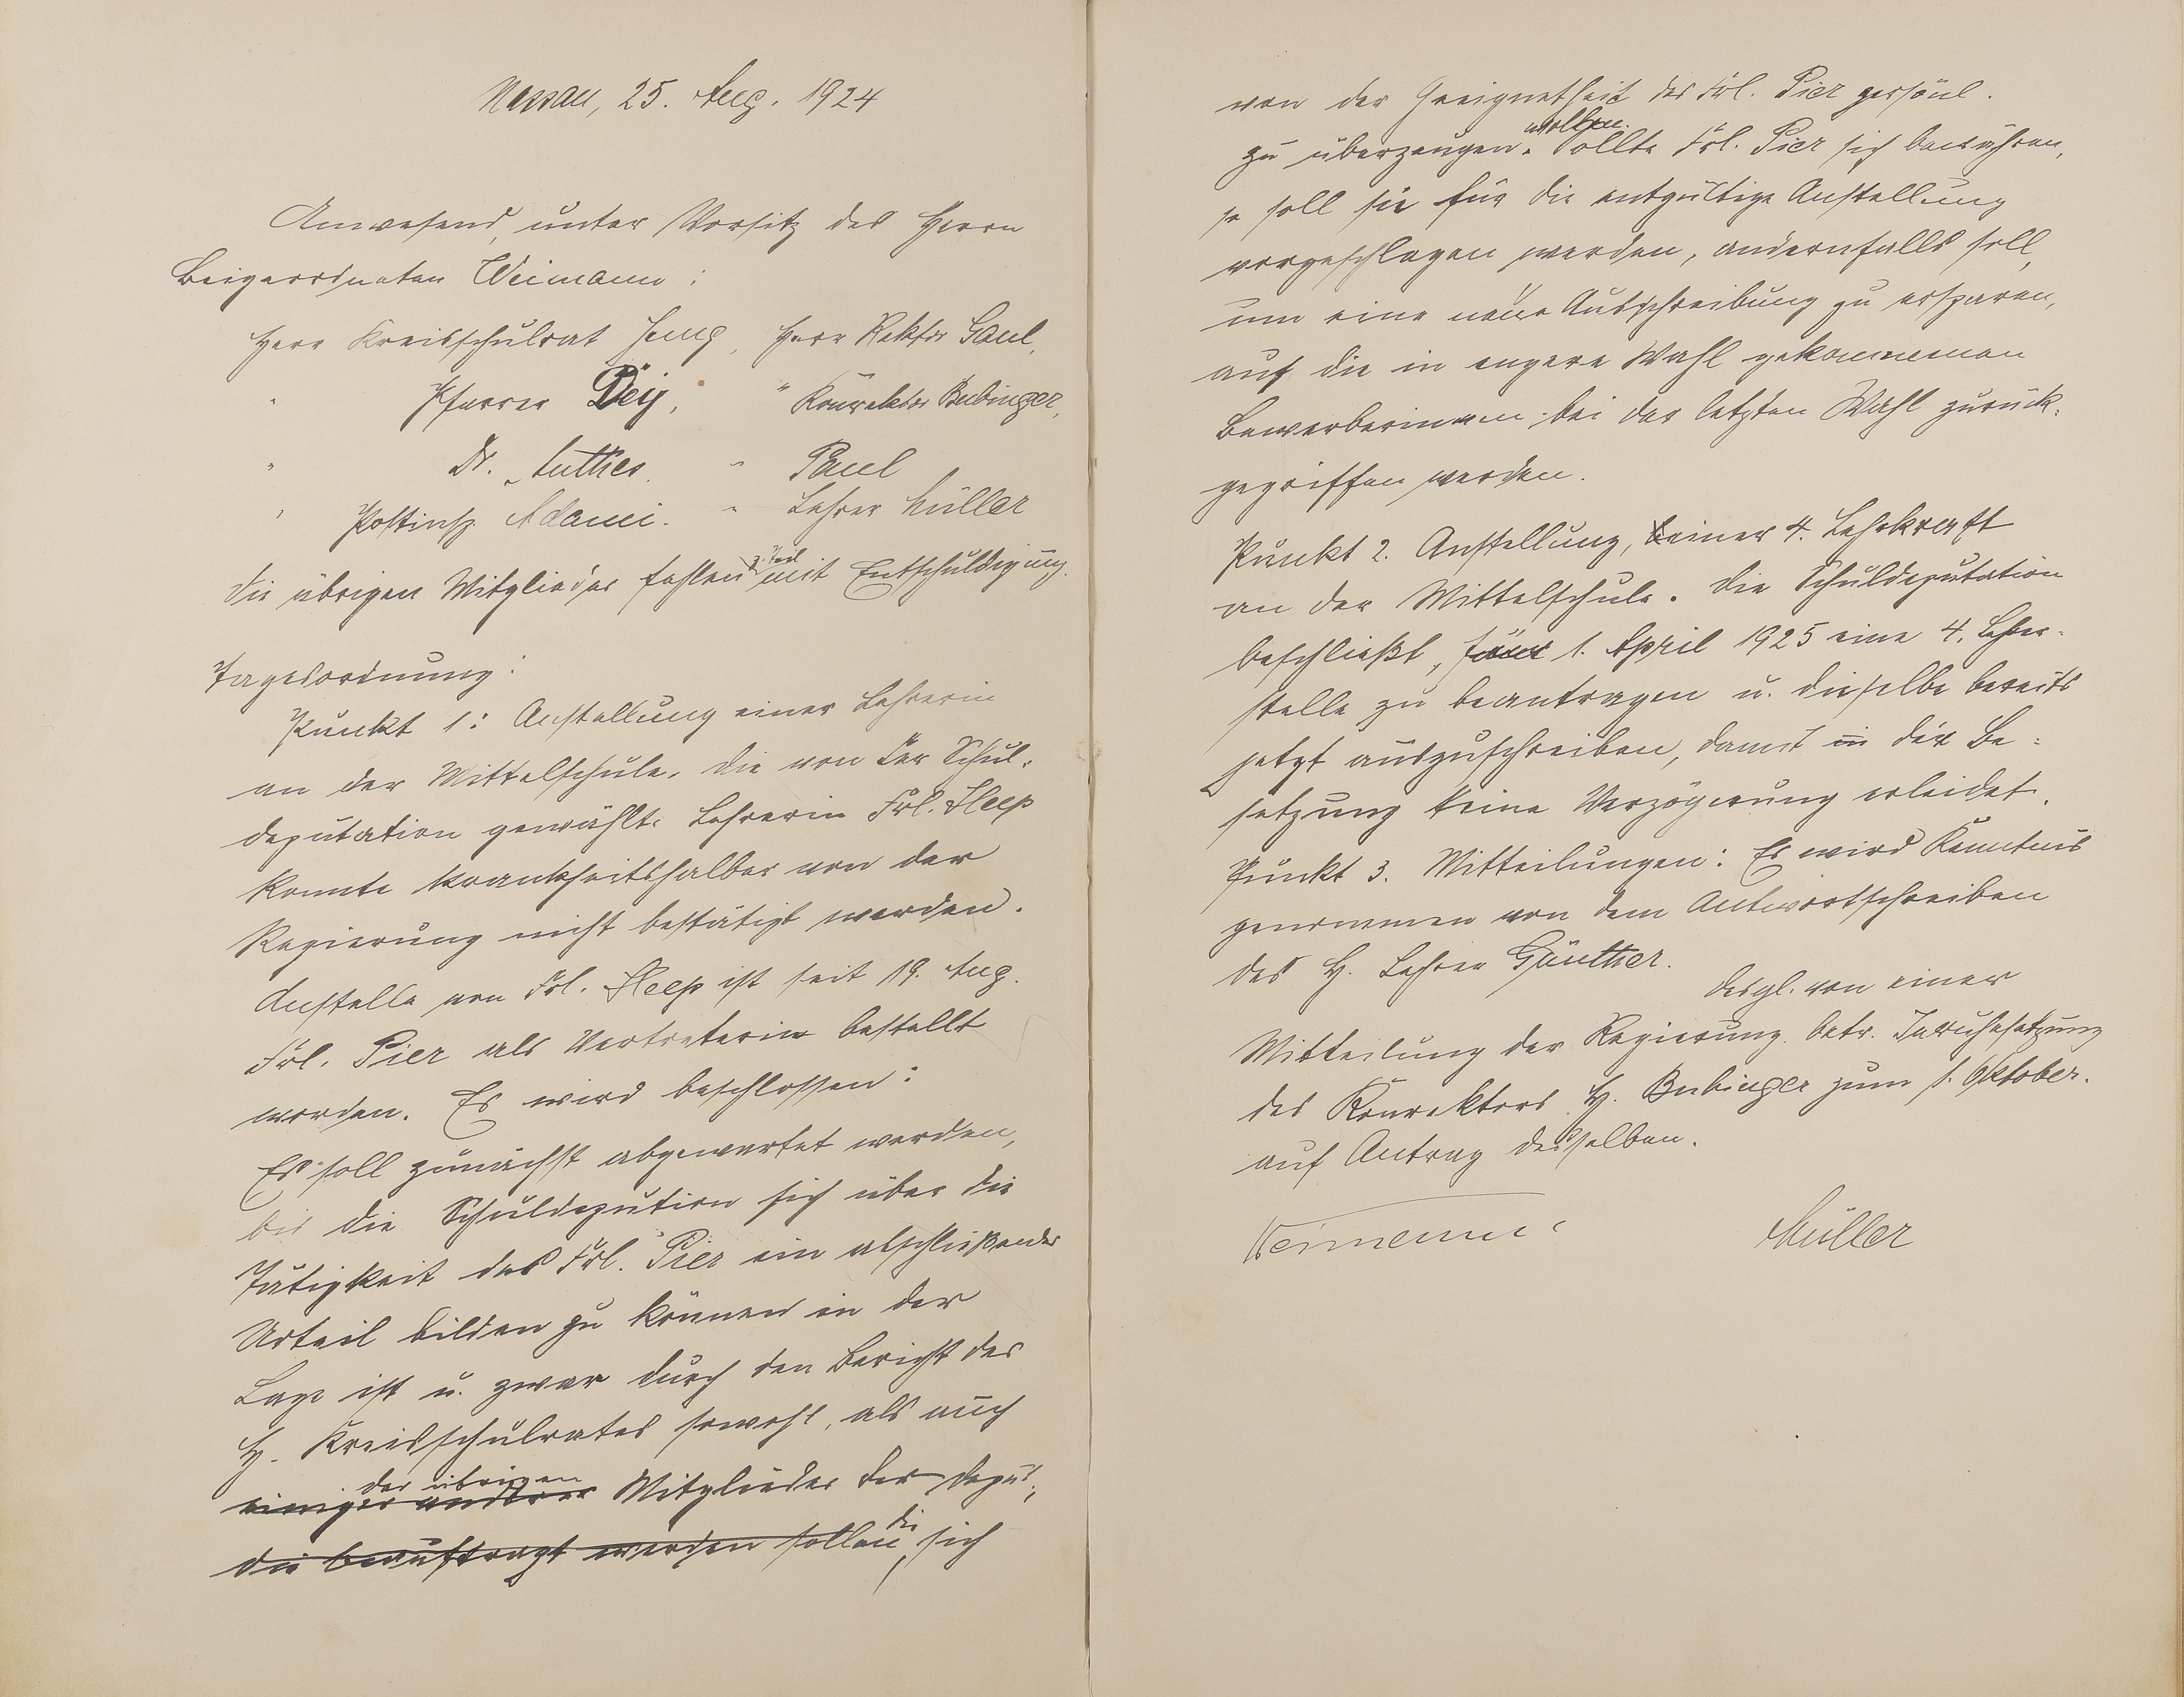 Nassau, 25. Aug. 1924
Anwesend, unter Vorsitz des Herrn
Beigeordneten Weimann:
Herr Kreisschulrat Jung, Herr Rektor Gaul,
" Pfarrer Deij, " Konrektor Bubinger,
" Dr. Anthes. " Paul
" Postinsp. Adami. " Lehrer Müller
Die übrigen Mitglieder fehlen z. Teil mit Entschuldigung.
Tagesordnung:
Punkt 1: Anstellung einer Lehrerin
an der Mittelschule. Die von der Schul-
deputation gewählte Lehrerin Frl. Heep
konnte krankheitshalber von der
Regierung nicht bestätigt werden.
Anstelle von Frl. Heep ist seit 19. Aug.
Frl. Pier als Vertreterin bestellt
worden. Es wird beschlossen:
Es soll zunächst abgewartet werden,
bis die Schuldepution sich über die
Tätigkeit des Frl. Pier ein abschließendes
Urteil bilden zu können in der
Lage ist u. zwar durch den Bericht des
H. Kreisschulrates sowohl, als auch
der übrigen
einiger anderer Mitglieder der Deput.,
die beauftragt werden sollen, die sich
von der Geeignetheit des Frl. Pier persönl.
zu überzeugen wollen. Sollte Frl. Pier sich bewähren,
so soll sie für die entgültige Anstellung
vorgeschlagen werden, andernfalls soll,
um eine neue Ausschreibung zu ersparen,
auf die in engere Wahl gekommenen
Bewerberinnen bei der letzten Wahl zurück-
gegriffen werden.
Punkt 2. Anstellung, einer 4. Lehrkraft
an der Mittelschule. Die Schuldeputation
beschließt, 1. April 1925 eine 4. Lehrer-
stelle zu beantragen u. dieselbe bereits
jetzt auszuschreiben, damit in der Be-
setzung keine Verzögerung erleidet.
Punkt 3. Mitteilungen: Es wird Kenntnis
genommen von dem Antwortschreiben
des H. Lehrer Günther.
Desgl. von einer
Mitteilung der Regierung betr. Inruhesetzung
des Konrektors H. Bubinger zum 1. Oktober.
auf Antrag desselben.
Weimann Müller